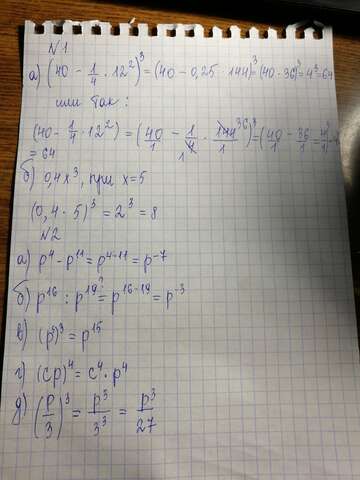 N1
а) (40 - 1/4 · 12²)³ = (40 - 0,25 · 144)³ = (40 - 36)³ = 4³ = 64
или так:
(40 - 1/4 · 12²) = (40/1 - 1/4 · 144/1 36)³ = (40/1 - 36/1 = 4/1)³ =
= 64
б) 0,4x³, при x = 5
(0,4 · 5)³ = 2³ = 8
N2
а) p⁴ - p¹¹ = p⁴⁻¹¹ = p⁻⁷
б) p¹⁶ : p¹⁹ = p¹⁶⁻¹⁹ = p⁻³
в) (p⁵)³ = p¹⁵
г) (cp)⁴ = c⁴ · p⁴
д) (p/3)³ = p³/3³ = p³/27